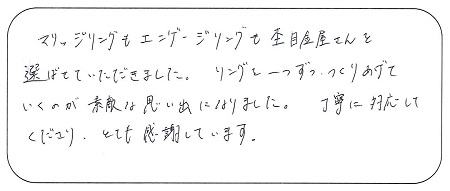 マリッジリングもエンゲージリングも杢目金屋さんを
選ばせていただきました。 リングを一つずつつくりあげて
いくのが素敵な思い出になりました。 丁寧に対応して
くださり、とても感謝しています。